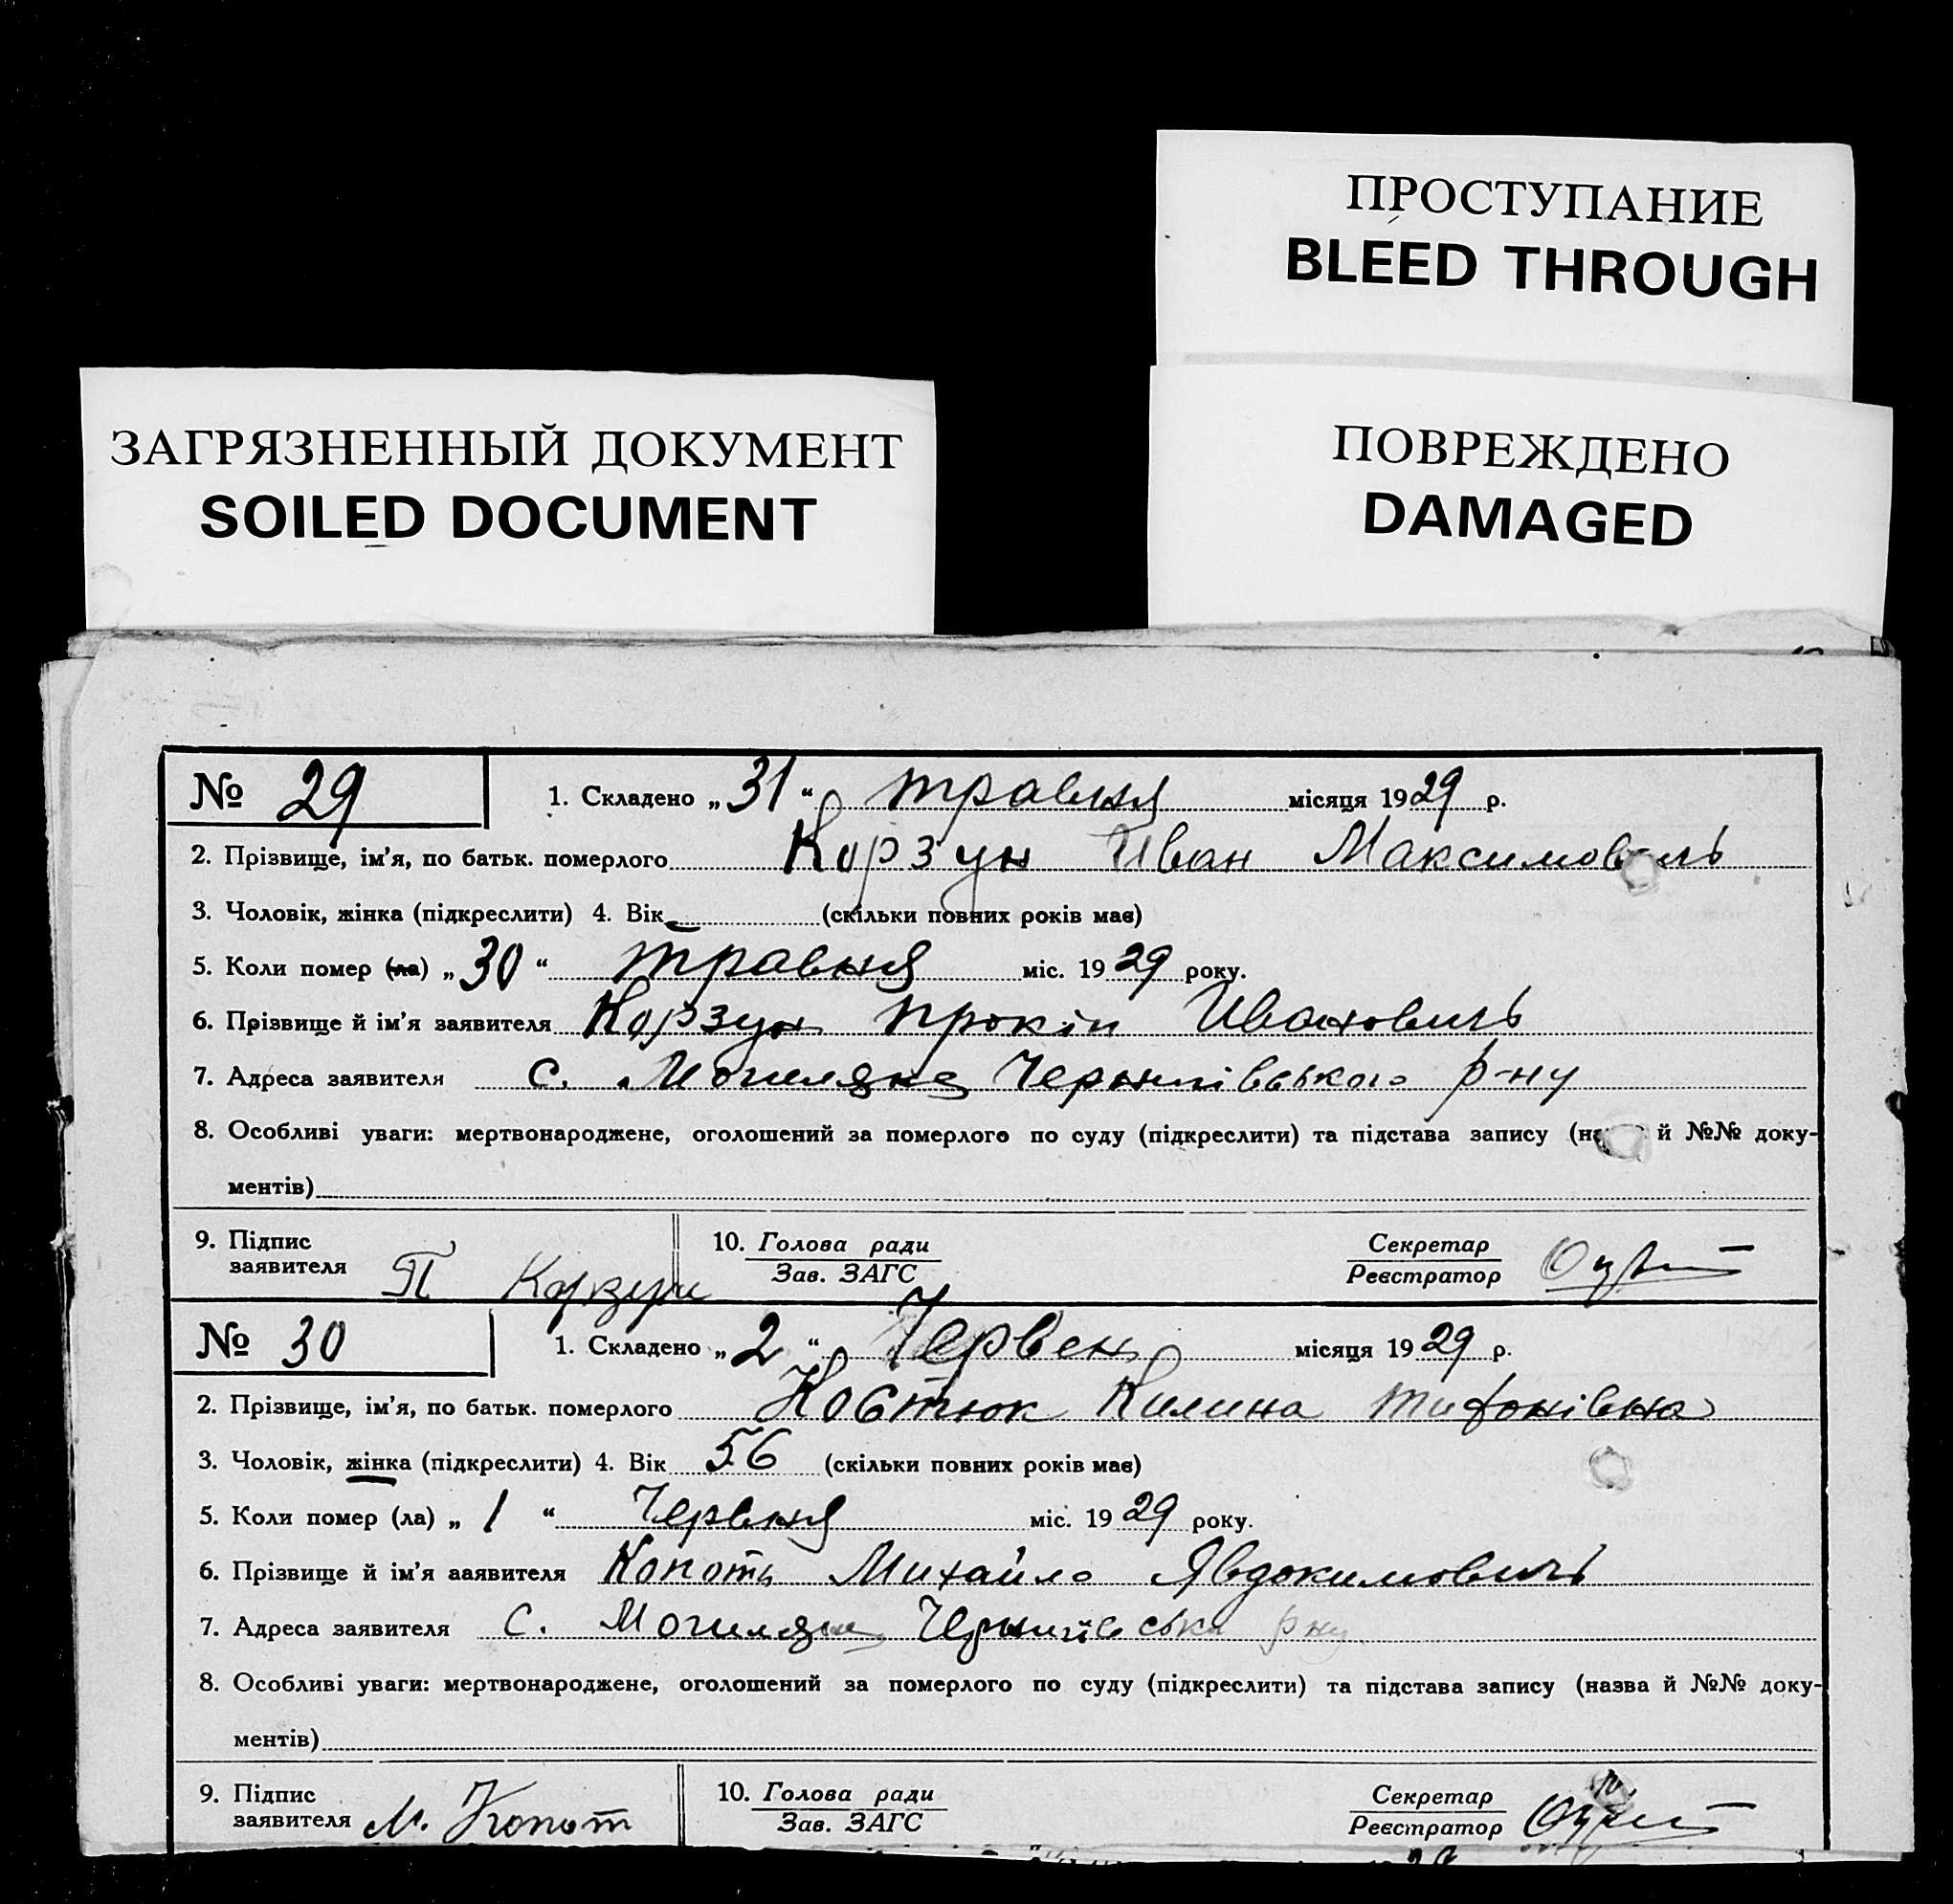 ПРОСТУПАНИЕ
BLEED THROUGH
ЗАГРЯЗНЕННЫЙ ДОКУМЕНТ
SOILED DOCUMENT
ПОВРЕЖДЕНО
DAMAGED
№ 29 1. Складено „31“ травня місяця 1929 р.
2. Прізвище, ім'я, по батьк. померлого Корзун Иван Максимович
3. Чоловік, жінка (підкреслити) 4. Вік (скільки повних років має)
5. Коли помер (ла) „30“ травня міс. 1929 року.
6. Прізвище й ім'я заявителя Корзун Прокіп Иванович
7. Адреса заявителя с. Чернигівського р-ну
8. Особливі уваги: мертвонароджене, оголошений за померлого по суду (підкреслити) та підстава запису й №№ доку-
ментів)
9. Підпис заявителя П Корзун 10. Голова ради Зав. ЗАГС Секретар Реєстратор
№ 30 1. Складено „2“ Червень місяця 1929 р.
2. Прізвище, ім'я, по батьк. померлого Костюк Килина
3. Чоловік, жінка (підкреслити) 4. Вік 56 (скільки повних років має)
5. Коли помер (ла) „1“ Червня міс. 1929 року.
6. Прізвище й ім'я заявителя Копоть Михайло Явдокимович
7. Адреса заявителя с. р-ну
8. Особливі уваги: мертвонароджене, оголошений за померлого по суду (підкреслити) та підстава запису (назва й №№ доку-
ментів)
9. Підпис заявителя М. Копот 10. Голова ради Зав. ЗАГС Секретар Реєстратор